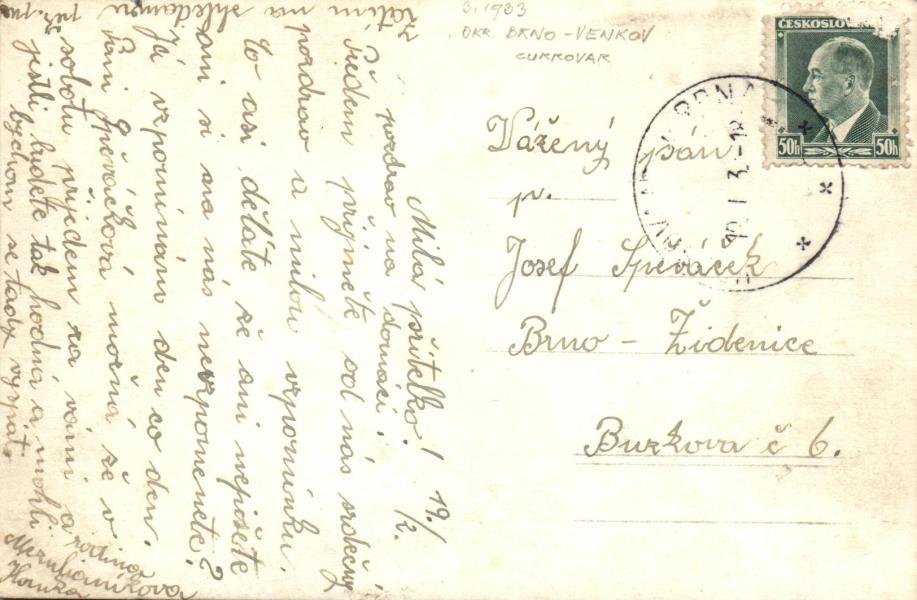 3. 1933
OKR. BRNO-VENKOV
CUKROVAR
ČESKOSLOVEN
50h 50h
BRNA
Vážený pán
p.
Josef Spěváček
Brno – Židenice
Burkova č 6.
19./
Milá přítelko! /2.
i pozdrav na domácí
Předem přijměte od nás srdečný
pozdrav a milou vzpomínku.
Co asi děláte že ani nepíšete
ani si na nás nevzpomenete?
Já vzpomínám den co den.
Paní Spěváčková možná že v
sobotu přijedem za vámi a
jestli budete tak hodná a mohli
bychom se tady vyspat.
Zatím na shledanou
rodina
Hanka